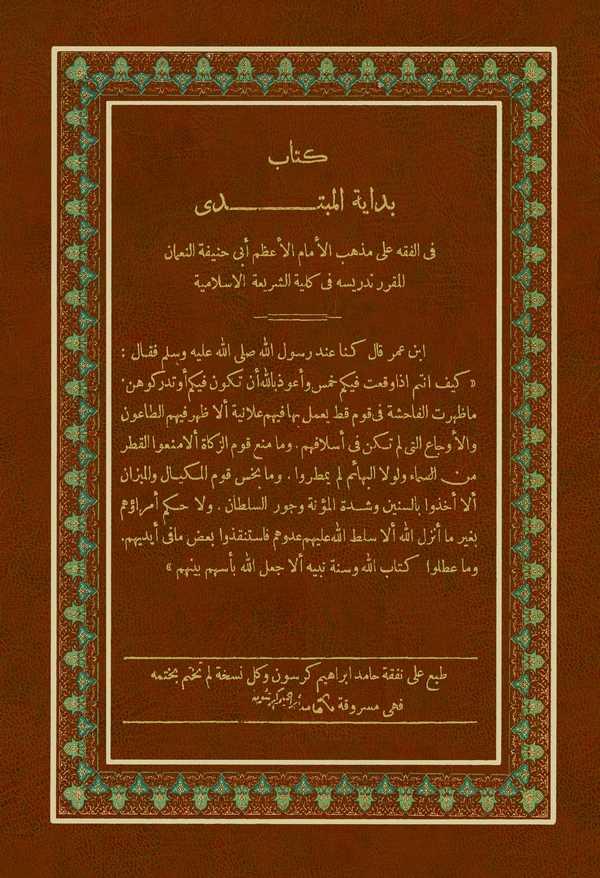 كتاب
بداية المبتدى
فى الفقه على مذهب الأمام الأعظم أبى حنيفة النعمان
المقرر تدريسه فى كلية الشريعة الاسلامية
ابن عمر قال كنا عند رسول الله صلى الله عليه وسلم فقال :
« كيف انتم اذا وقعت فيكم خمس وأعوذ بالله أن تكون فيكم أو تدركوهن .
ماظهرت الفاحشة فى قوم قط يعمل بها فيهم علانية ألا ظهر فيهم الطاعون
والأوجاع التى لم تكن فى أسلافهم . وما منع قوم الزكاة ألا منعوا القطر
من السماء ولولا البهائم لم يمطروا . وما بخس قوم المكيال والميزان
ألا أخذوا بالسنين وشدة المؤنة وجور السلطان . ولا حكم أمراؤهم
بغير ما أنزل الله ألا سلط الله عليهم عدوهم فاستنقذوا بعض مافى أيديهم .
وما عطلوا كتاب الله وسنة نبيه ألا جعل الله بأسهم بينهم »
طبع على نفقة حامد ابراهيم كرسون وكل نسخة لم تختم بختمه
فهى مسروقة